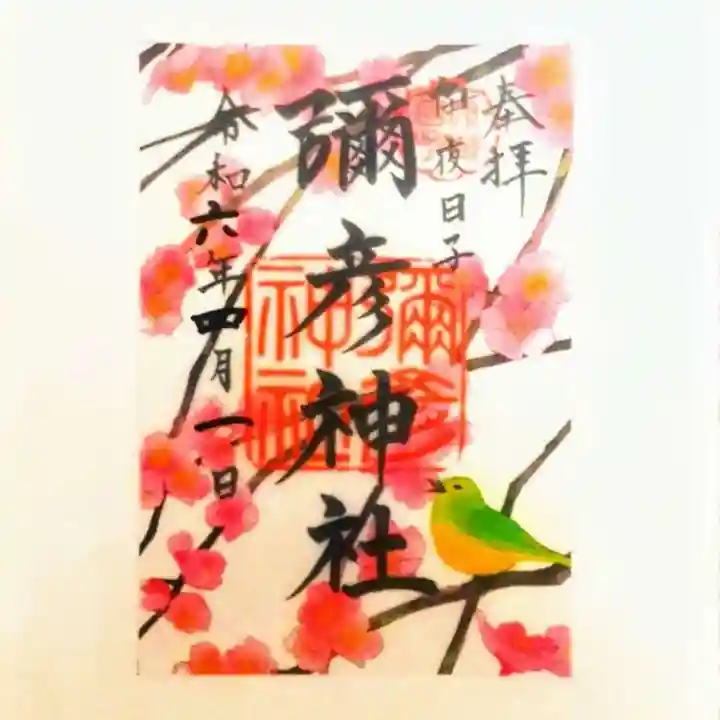 奉拝
伊夜日子
彌彦神社
令和六年四月一日
彌彦
神社